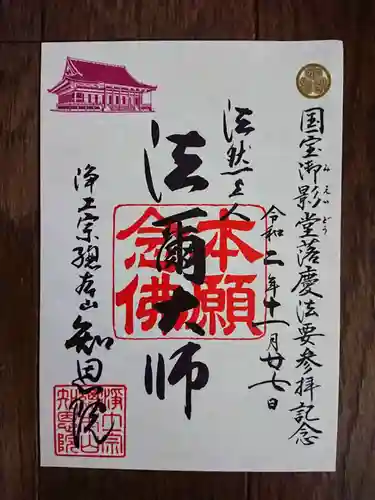 国宝御影堂落慶法要参拝記念
みえいどう
令和二年十一月廿七日
法然上人
法爾大師
本願
念佛
浄土宗總本山
知恩院
浄土宗
總本山
知恩院